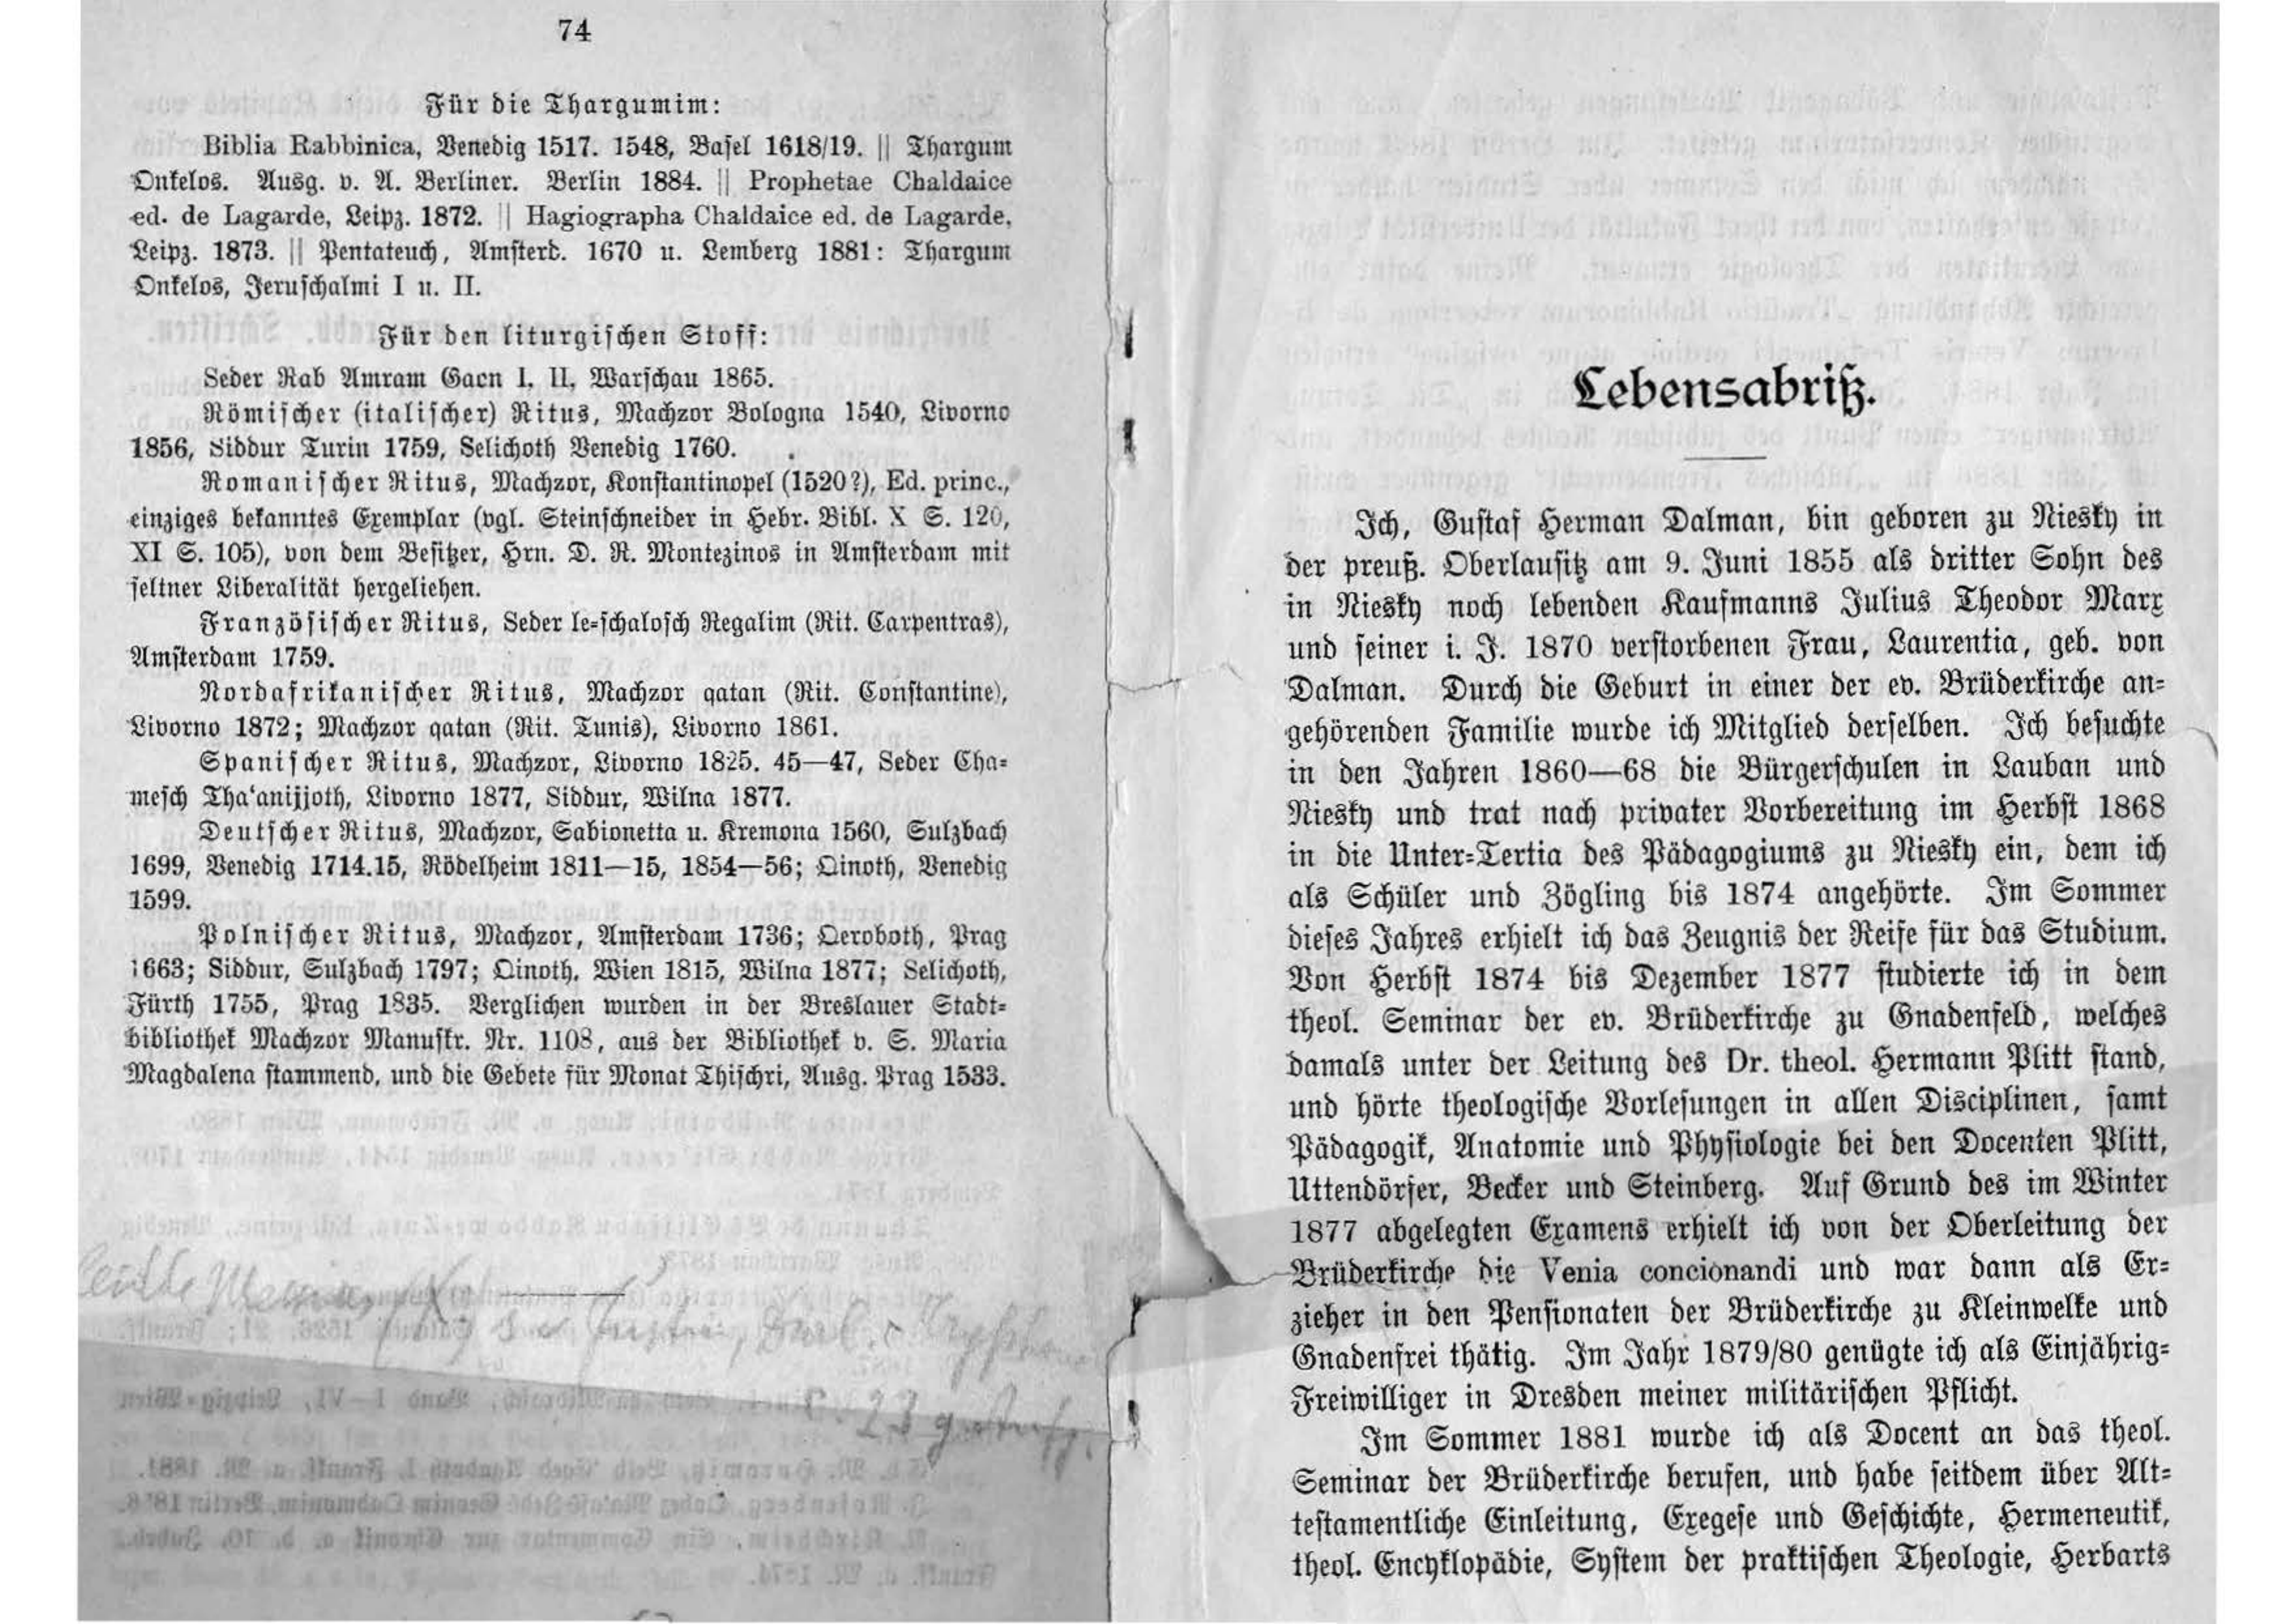 74
Für die Thargumim:
Biblia Rabbinica, Venedig 1517. 1548, Basel 1618/19. || Thargum
Onkelos. Ausg. v. A. Berliner. Berlin 1884. || Prophetae Chaldaice
ed. de Lagarde, Leipz. 1872. || Hagiographa Chaldaice ed. de Lagarde,
Leipz. 1873. || Pentateuch, Amsterd. 1670 u. Lemberg 1881: Thargum
Onkelos, Jeruschalmi I u. II.
Für den liturgischen Stoff:
Seder Rab Amram Gacn I. II. Warschau 1865.
Römischer (italischer) Ritus, Machzor Bologna 1540, Livorno
1856, Siddur Turin 1759, Selichoth Venedig 1760.
Romanischer Ritus, Machzor, Konstantinopel (1520?), Ed. princ.,
einziges bekanntes Exemplar (vgl. Steinschneider in Hebr. Bibl. X S. 120,
XI S. 105), von dem Besitzer, Hrn. D. R. Montezinos in Amsterdam mit
seltner Liberalität hergeliehen.
Französischer Ritus, Seder le-schalosch Regalim (Rit. Carpentras),
Amsterdam 1759.
Nordafrikanischer Ritus, Machzor qatan (Rit. Constantine),
Livorno 1872; Machzor qatan (Rit. Tunis), Livorno 1861.
Spanischer Ritus, Machzor, Livorno 1825. 45—47, Seder Cha-
mesch Tha'anijjoth, Livorno 1877, Siddur, Wilna 1877.
Deutscher Ritus, Machzor, Sabionetta u. Kremona 1560, Sulzbach
1699, Venedig 1714.15, Rödelheim 1811—15, 1854—56; Qinoth, Venedig
1599.
Polnischer Ritus, Machzor, Amsterdam 1736; Qeroboth, Prag
1663; Siddur, Sulzbach 1797; Qinoth, Wien 1815, Wilna 1877; Selichoth,
Fürth 1755, Prag 1835. Verglichen wurden in der Breslauer Stadt-
bibliothek Machzor Manuskr. Nr. 1108, aus der Bibliothek v. S. Maria
Magdalena stammend, und die Gebete für Monat Thischri, Ausg. Prag 1533.
Lebensabriß.
Ich, Gustaf Herman Dalman, bin geboren zu Niesky in
der preuß. Oberlausitz am 9. Juni 1855 als dritter Sohn des
in Niesky noch lebenden Kaufmanns Julius Theodor Marx
und seiner i. J. 1870 verstorbenen Frau, Laurentia, geb. von
Dalman. Durch die Geburt in einer der ev. Brüderkirche an-
gehörenden Familie wurde ich Mitglied derselben. Ich besuchte
in den Jahren 1860—68 die Bürgerschulen in Lauban und
Niesky und trat nach privater Vorbereitung im Herbst 1868
in die Unter-Tertia des Pädagogiums zu Niesky ein, dem ich
als Schüler und Zögling bis 1874 angehörte. Im Sommer
dieses Jahres erhielt ich das Zeugnis der Reife für das Studium.
Von Herbst 1874 bis Dezember 1877 studierte ich in dem
theol. Seminar der ev. Brüderkirche zu Gnadenfeld, welches
damals unter der Leitung des Dr. theol. Hermann Plitt stand,
und hörte theologische Vorlesungen in allen Disciplinen, samt
Pädagogik, Anatomie und Physiologie bei den Docenten Plitt,
Uttendörfer, Becker und Steinberg. Auf Grund des im Winter
1877 abgelegten Examens erhielt ich von der Oberleitung der
Brüderkirche die Venia concionandi und war dann als Er-
zieher in den Pensionaten der Brüderkirche zu Kleinwelke und
Gnadenfrei thätig. Im Jahr 1879/80 genügte ich als Einjährig-
Freiwilliger in Dresden meiner militärischen Pflicht.
Im Sommer 1881 wurde ich als Docent an das theol.
Seminar der Brüderkirche berufen, und habe seitdem über Alt-
testamentliche Einleitung, Exegese und Geschichte, Hermeneutik,
theol. Encyklopädie, System der praktischen Theologie, Herbarts